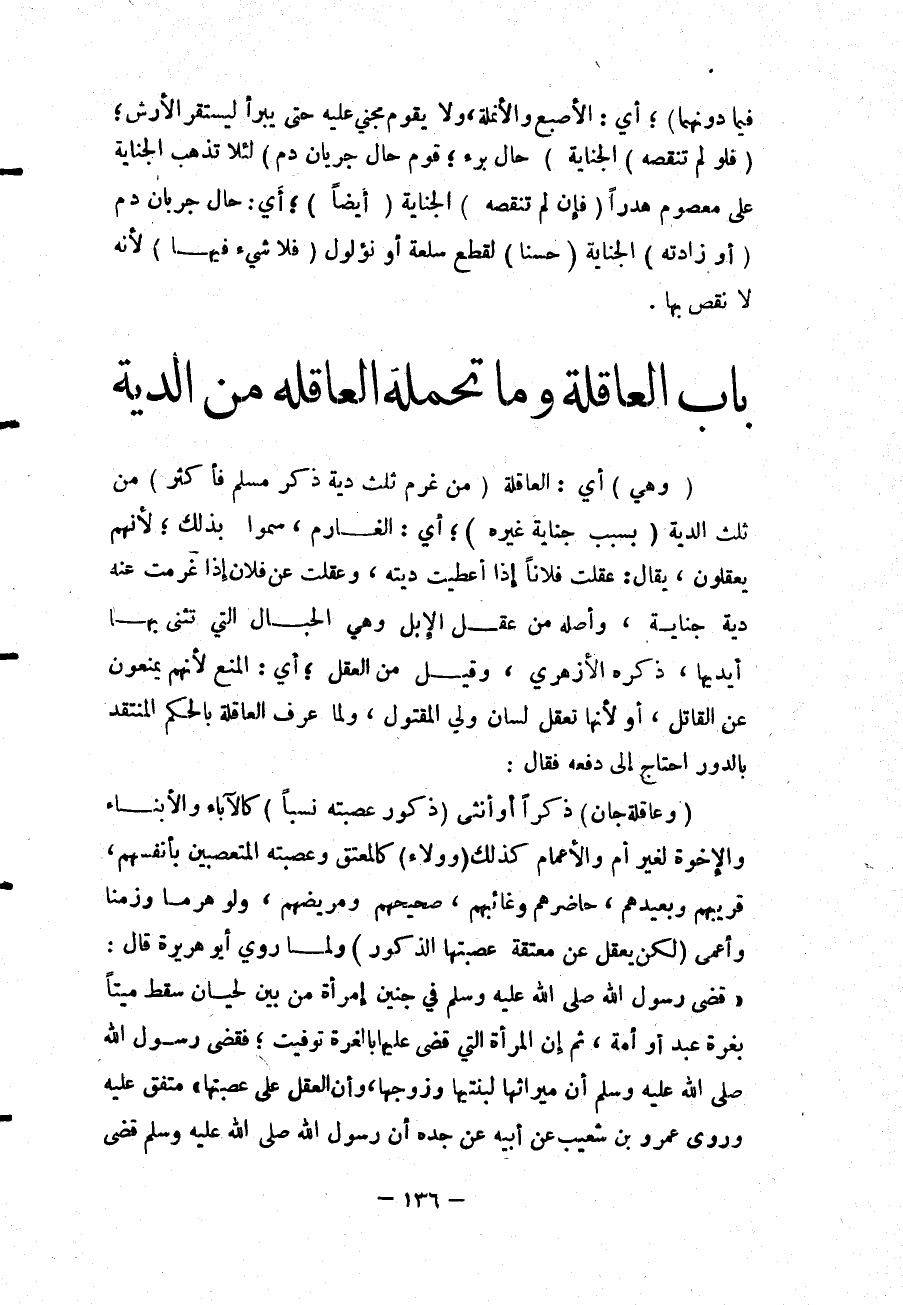 فيما دونهما) ؛ أي : الأصبع والأنملة، ولا يقوم مجني عليه حتى يبرأ ليستقر الأرش؛
( فلو لم تنقصه ) الجناية ) حال برء ؛ قوم حال جريان دم ) لئلا تذهب الجناية
على معصوم هدراً ( فإن لم تنقصه ) الجناية ( أيضاً ) ؛ أي: حال جريان دم
( أو زادته ) الجناية ( حسنا ) لقطع سلعة أو نؤلول ( فلا شيء فيهـا ) لأنه
لا نقص بها .
باب العاقلة وما تحمله العاقله من الدية
( وهي ) أي : العاقلة ( من غرم ثلث دية ذكر مسلم فأكثر ) من
ثلث الدية ( بسبب جناية غيره ) ؛ أي : الغـارم ، سموا بذلك ؛ لأنهم
يعقلون ، يقال: عقلت فلاناً إذا أعطيت ديته ، وعقلت عن فلان إذا غرمت عنه
دية جنايـة ، وأصله من عقـل الإبل وهي الحبـال التي تثنى بهـا
أيديها ، ذكره الأزهري ، وقيـل من العقل ؛ أي : المنع لأنهم يمنعون
عن القاتل ، أو لأنها تعقل لسان ولي المقتول ، ولما عرف العاقلة بالحكم المنتقد
بالدور احتاج إلى دفعه فقال :
( وعاقلة جان ) ذكراً أو أنثى ( ذكور عصبته نسباً ) كالآباء والأبنـاء
والإخوة لغير أم والأعمام كذلك (وولاء) كالمعتق وعصبته المتعصبين بأنفسهم،
قريبهم وبعيدهم ، حاضرهم وغائبهم ، صحيحهم ومريضهم ، ولو هرما وزمنا
وأعمى (لكن يعقل عن معتقة عصبتها الذكور ) ولمـا روي أبو هريرة قال :
« قضى رسول الله صلى الله عليه وسلم في جنين إمرأة من بين لحيان سقط ميتاً
بغرة عبد أو أمة ، ثم إن المرأة التي قضى عليها بالغرة توفيت ؛ فقضى رسـول الله
صلى الله عليه وسلم أن ميراثها لبنتيها وزوجها، وأن العقل على عصبتها» متفق عليه
وروى عمرو بن شعيب عن أبيه عن جده أن رسول الله صلى الله عليه وسلم قضى
– ١٣٦ –